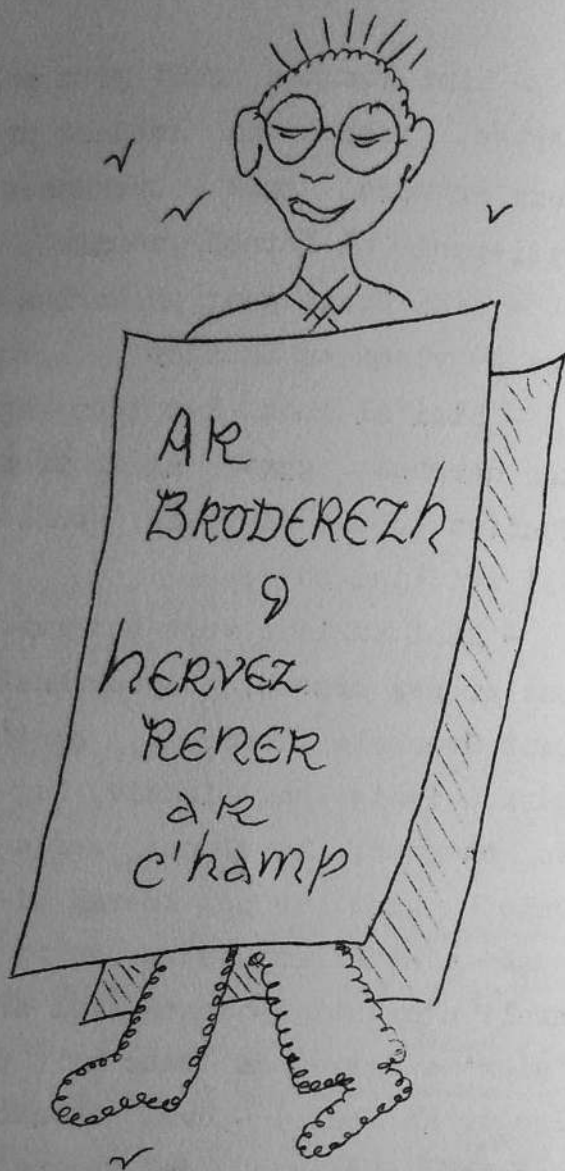 AR
BRODEREZh
,
hERVEZ
RENER
aR
c'hamp